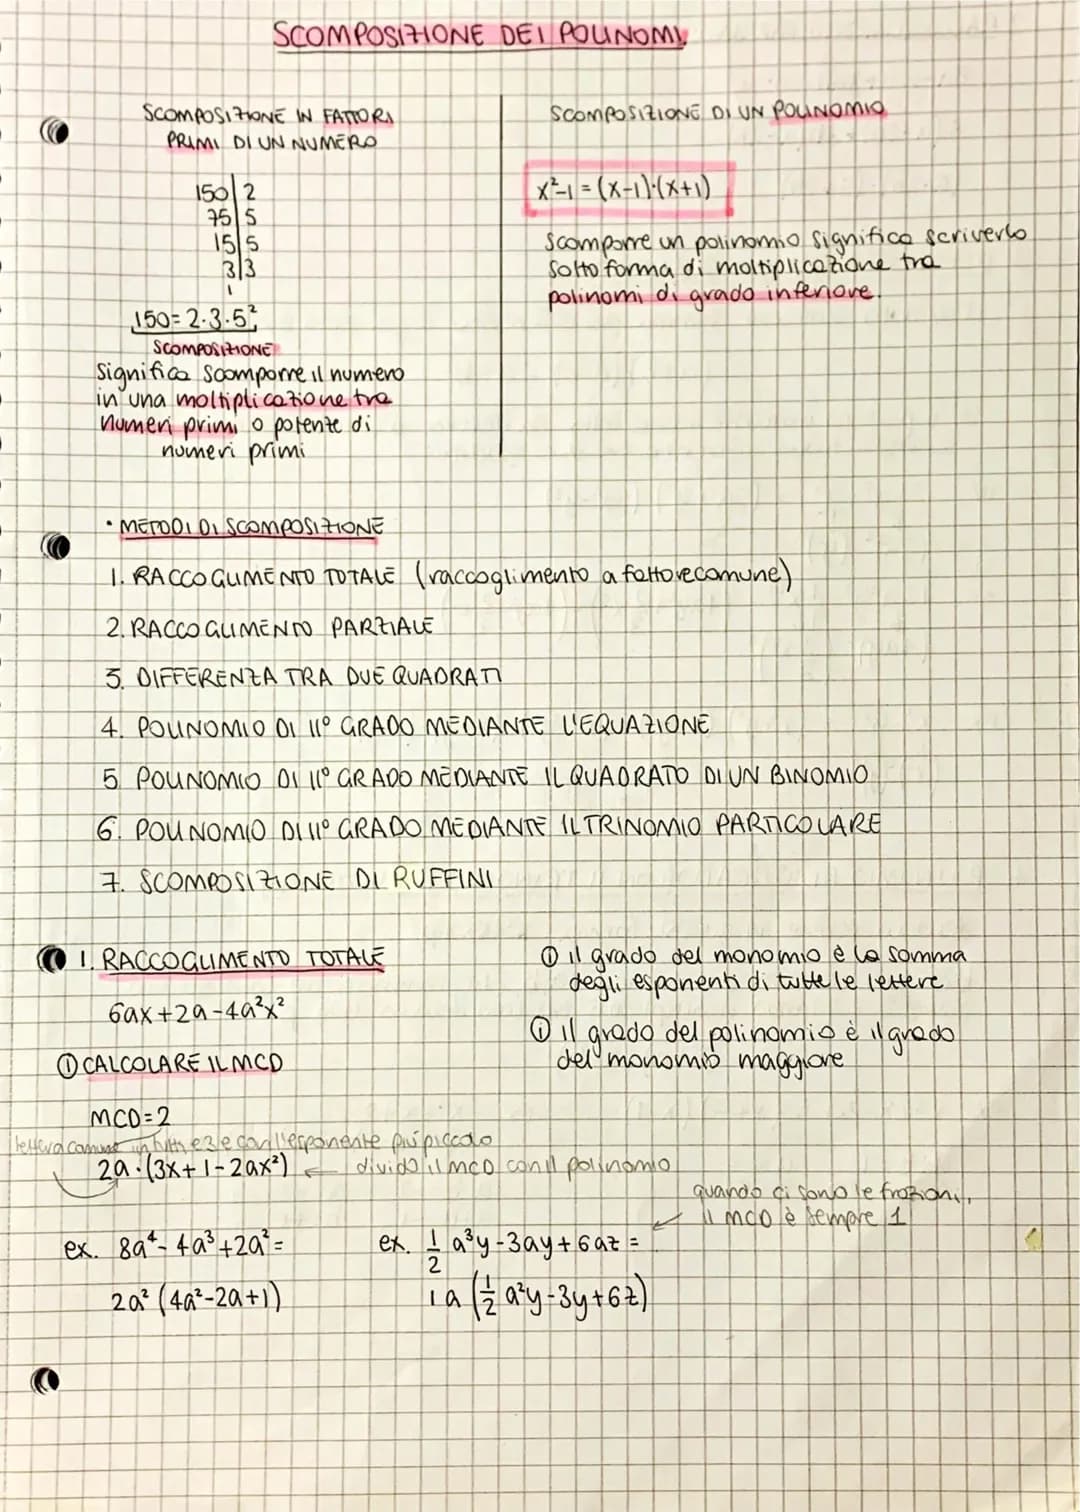 SCOMPOSIZIONE DEI POLINOMI
SCOMPOSIZIONE IN FATTORI
PRIMI DI UN NUMERO
150|2
75|5
15|5
3|3
1
150=2·3·5²
SCOMPOSIZIONE
Significa scomporre il numero
in una moltiplicazione tra
numeri primi o potenze di
numeri primi
SCOMPOSIZIONE DI UN POLINOMIO
x²-1=(x-1)·(x+1)
Scomporre un polinomio significa scriverlo
sotto forma di moltiplicazione tra
polinomi di grado inferiore.
• METODI DI SCOMPOSIZIONE
1. RACCOGLIMENTO TOTALE (raccoglimento a fattore comune)
2. RACCOGLIMENTO PARZIALE
3. DIFFERENZA TRA DUE QUADRATI
4. POLINOMIO DI II° GRADO MEDIANTE L'EQUAZIONE
5. POLINOMIO DI II° GRADO MEDIANTE IL QUADRATO DI UN BINOMIO
6. POLINOMIO DI II° GRADO MEDIANTE IL TRINOMIO PARTICOLARE
7. SCOMPOSIZIONE DI RUFFINI
1. RACCOGLIMENTO TOTALE
6ax+2a-4a²x²
① CALCOLARE IL MCD
MCD=2
① il grado del monomio è la somma
degli esponenti di tutte le lettere
① il grado del polinomio è il grado
del monomio maggiore
lettera comune in tutti e 3 e con l'esponente più piccolo
2a·(3x+1-2ax²) ← divido il MCD con il polinomio
quando ci sono le frazioni,
il MCD è sempre 1
ex. 8a⁴-4a³+2a²=
2a²(4a²-2a+1)
ex. 1/2 a³y-3ay+6az=
1a(1/2 a²y-3y+6z)